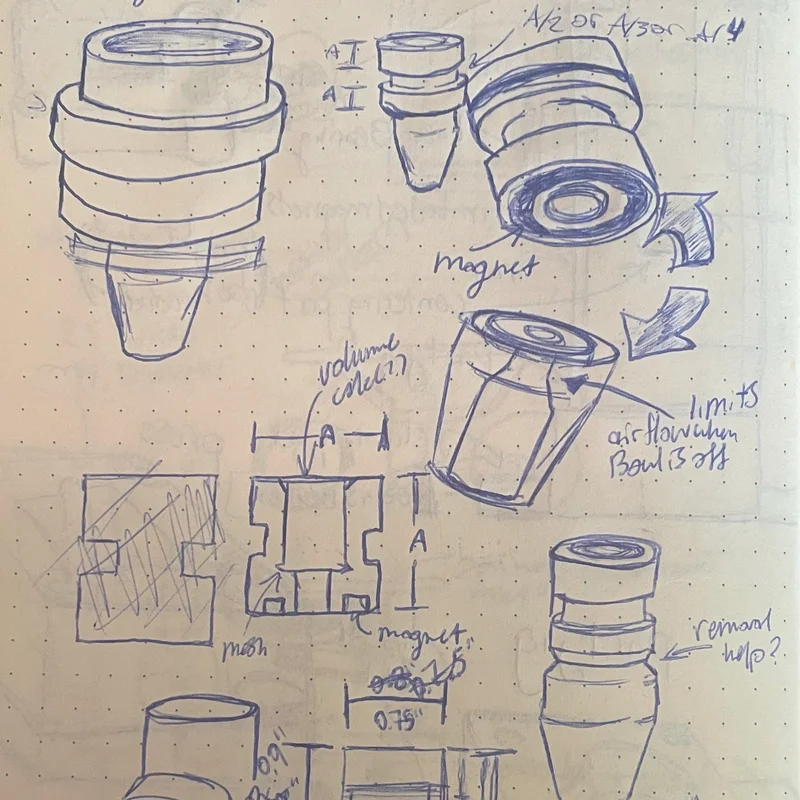 A/2 or A/3 or A/4
A
A
magnet
volume
A
limits
airflow when
Bowl is off
A
mesh
magnet
removal
help?
1.5"
0.75"
0.9"